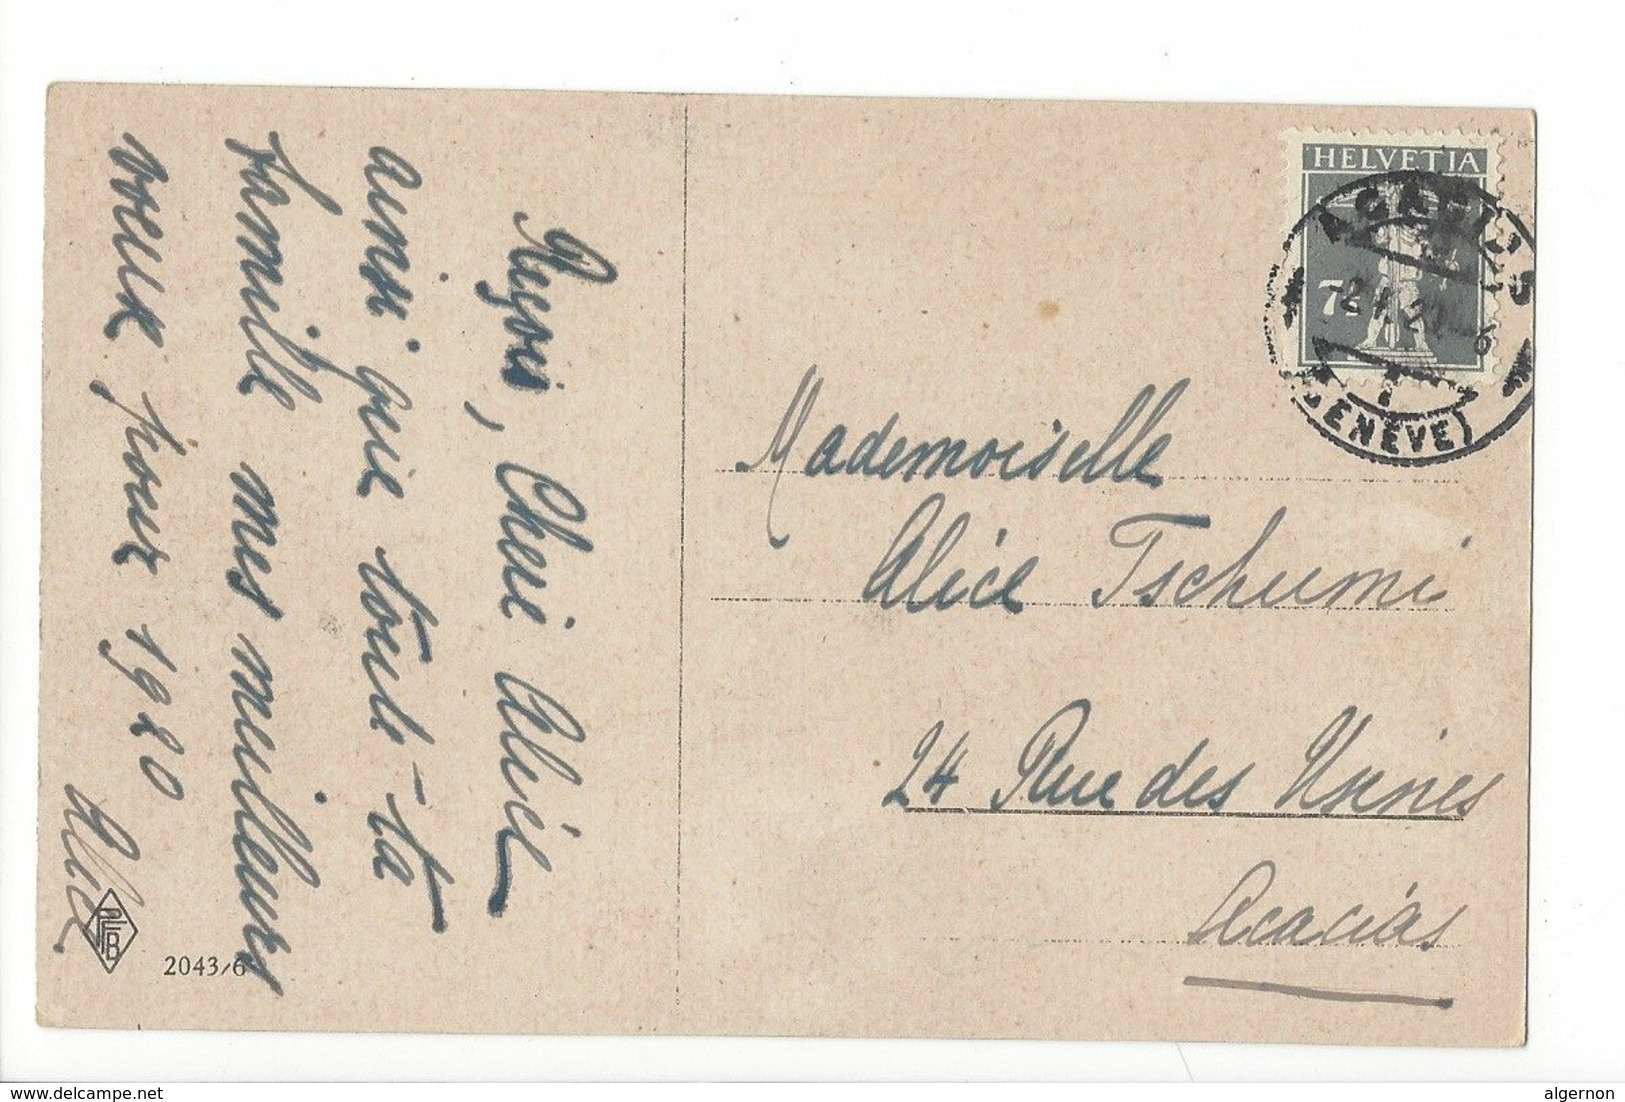 Reçois, Cheri Alice
ainsi que toute-ta
famille mes meilleurs
voeux pour 1920
Alice
PFB
2043/6
HELVETIA
7½
ACACIAS
-2.I.20.-6
(GENÈVE)
Mademoiselle
Alice Tschumi
24 Rue des Usines
Acacias
www.delcampe.net
algernon